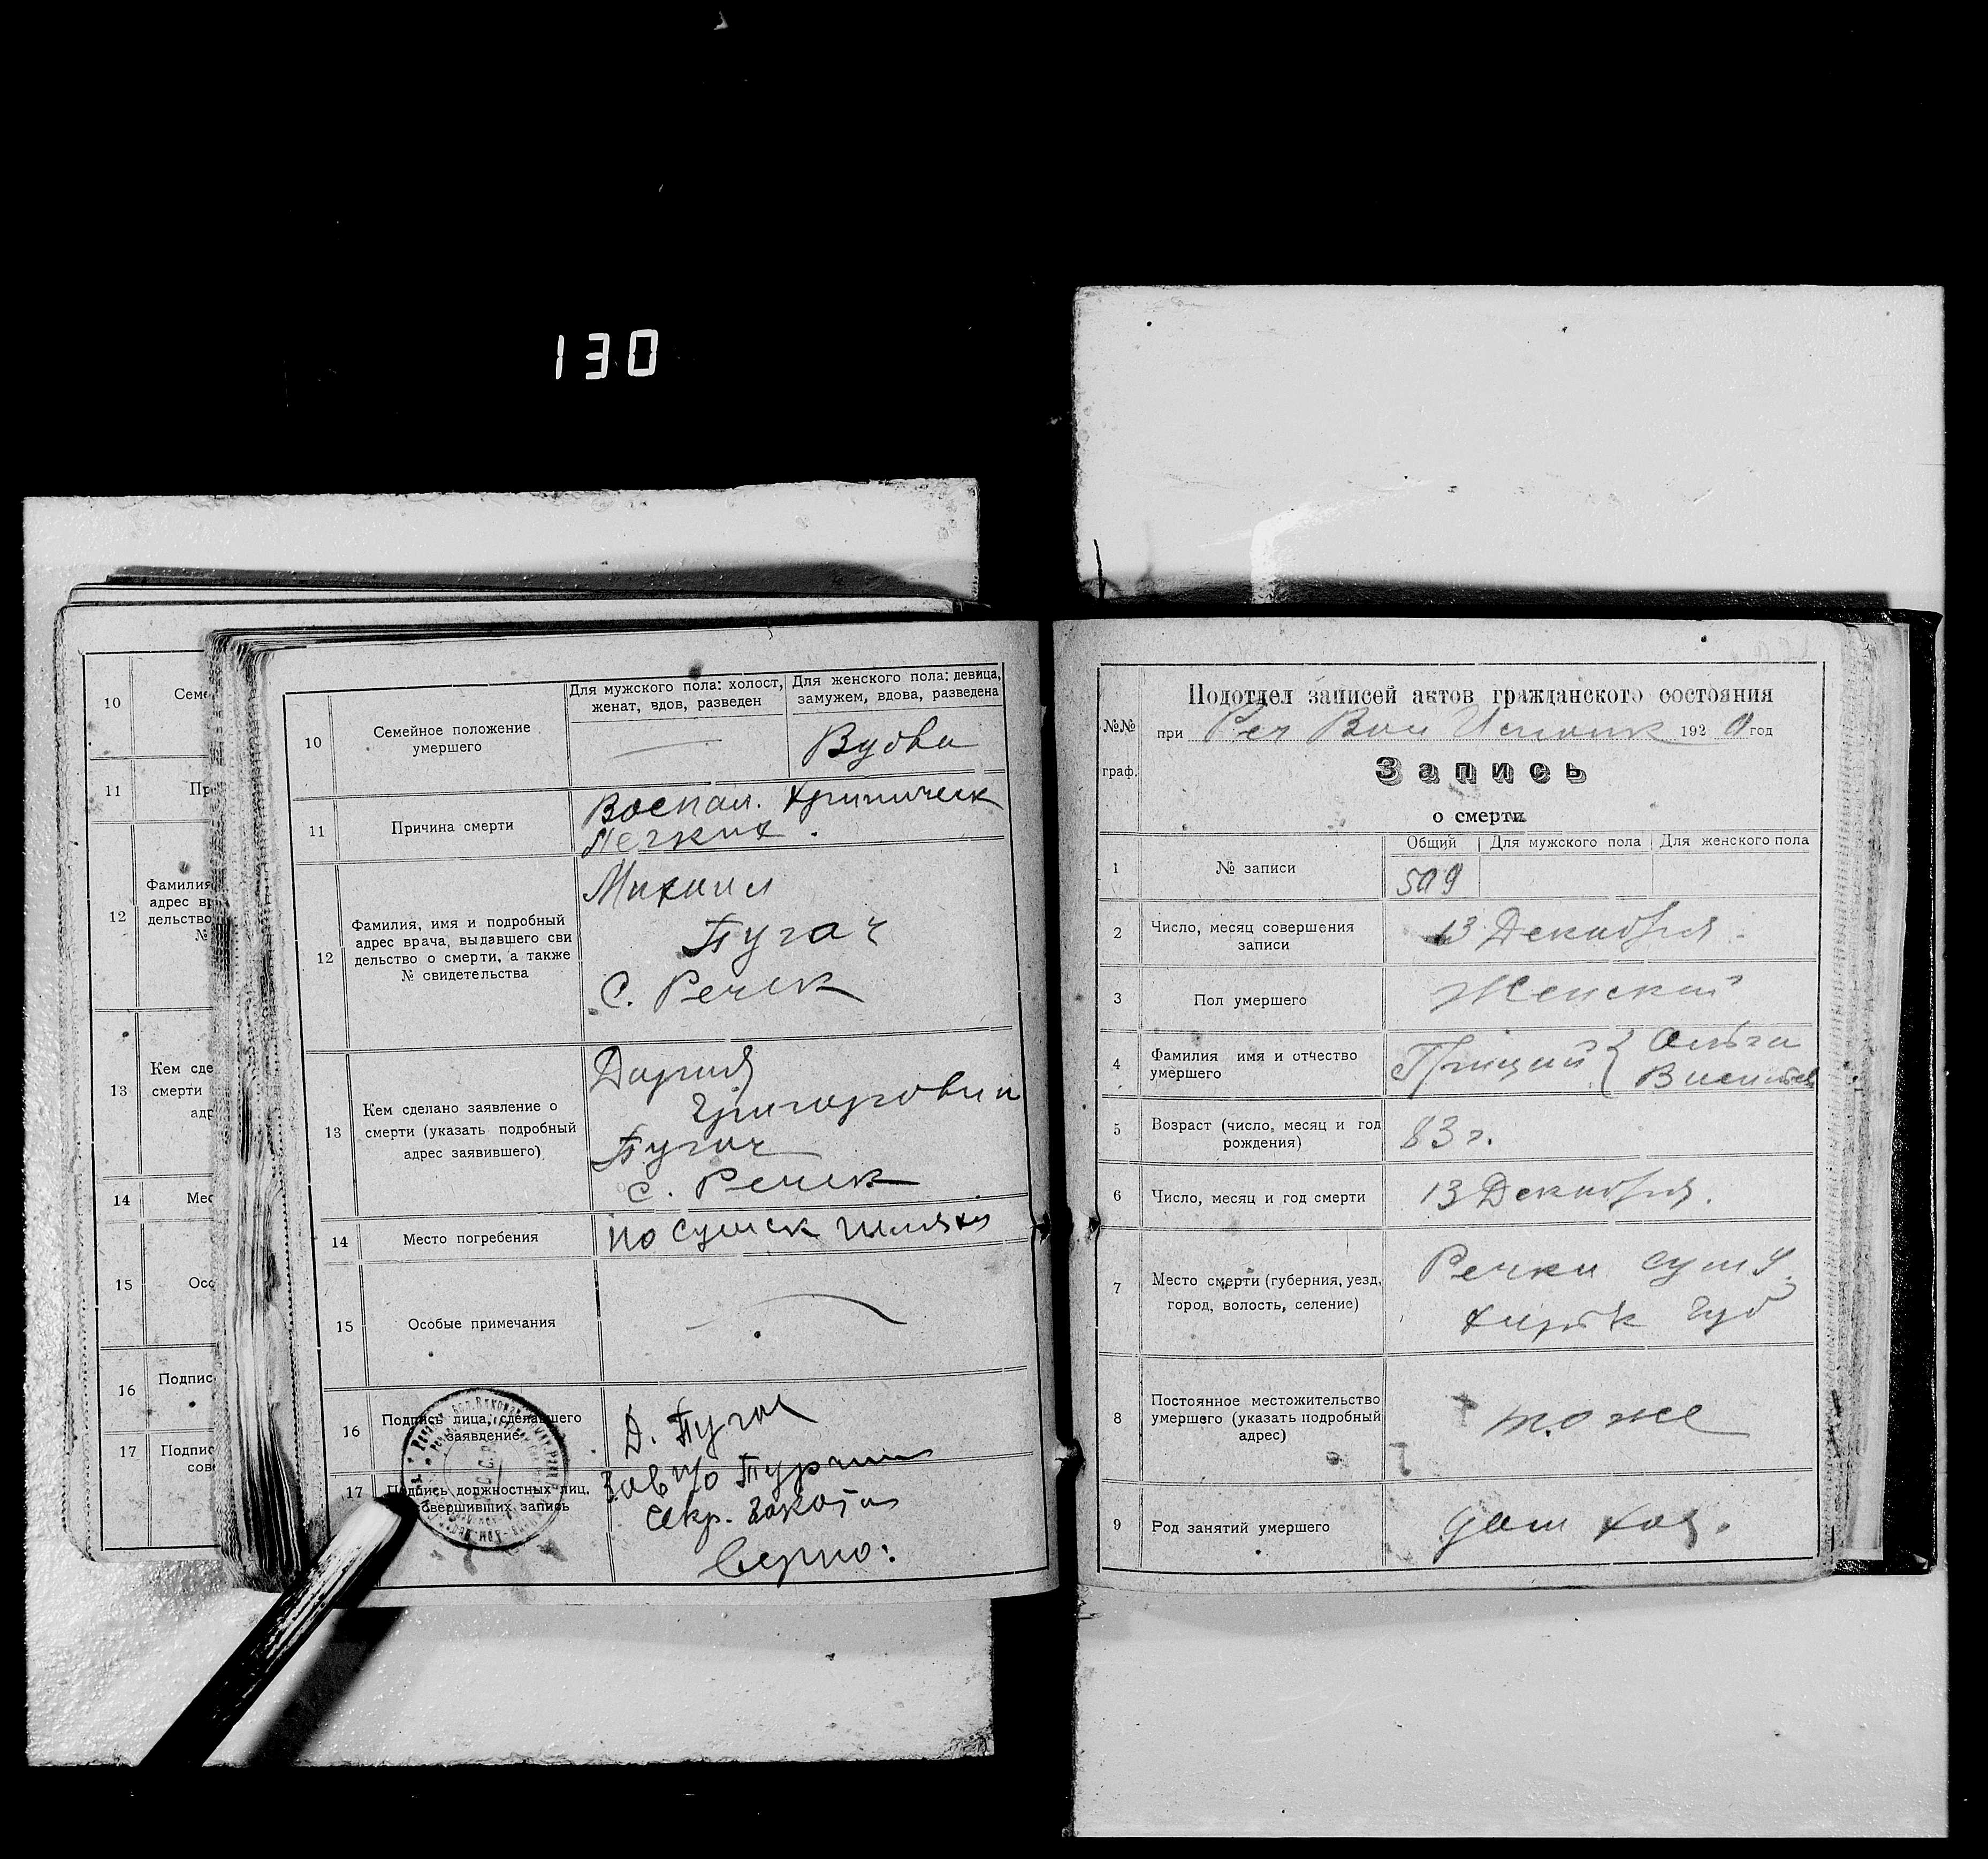 130
10
Семе
11
Пр
12
Фамилия
адрес вр
дельство
№
13
Кем сде
смерти
адр
14
Мес
15
Осо
16
Подпис
17
Подпис
сов
10
Семейное положение
умершего
Для мужского пола: холост,
женат, вдов, разведен
Для женского пола: девица,
замужем, вдова, разведена
Вудва
11
Причина смерти
Воспал. хриническ
легких.
12
Фамилия, имя и подробный
адрес врача, выдавшего сви
дельство о смерти, а также
№ свидетельства
Михаил
Пугач
С. Речек
13
Кем сделано заявление о
смерти (указать подробный
адрес заявившего)
Дария
Григоровна
Пугач
С. Речек
14
Место погребения
по Сумск шляху
15
Особые примечания
16
Подпись лица, сделавшего
заявление
Д. Пугач
17
Подпись должностных лиц,
совершивших запись
Зав п/о
Секр.
Верно:
Подотдел записей актов гражданского состояния
№№
граф.
при Реч Вол Исполк 1920 год
Запись
о смерти
1
№ записи
Общий
Для мужского пола
Для женского пола
509
2
Число, месяц совершения
записи
13 Декабря.
3
Пол умершего
Женский
4
Фамилия имя и отчество
умершего
Грицай { Ольга
5
Возраст (число, месяц и год
рождения)
83 г.
6
Число, месяц и год смерти
13 Декабря.
7
Место смерти (губерния, уезд,
город, волость, селение)
Речки Сум у,
Харьк губ
8
Постоянное местожительство
умершего (указать подробный
адрес)
тоже
9
Род занятий умершего
дом хоз.